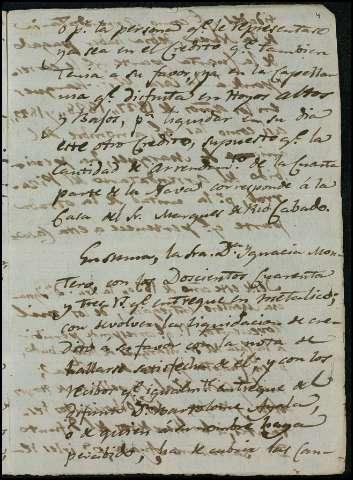 o pr. la persona qe. le representare
ya sea en el Credito qe. tambien
tenia a su favor, ya en la Capellania
qe. disfruta en Hoyos altos
y bajos, pa. liquidar en su dia
este otro Credito, supuesto qe. la
Cantidad de Arrendamto. de la Cuarta
parte de la Java corresponde á la
Casa del Sr. Marques de Rio Cabado.
En suma, la Sra. Da. Ygnacia Montero,
con los Doscientos Cuarenta
y tres rs. qe. entregue en metalico,
con devolver la liquidacion de credito
a su favor con la nota de
hallarse satisfecha de el, y con los
recibos qe. igualmte. entregue del
difunto Dn. Bartolome Ayala,
o de quien en su nombre haya
percibido, ha de cubrir las Can-